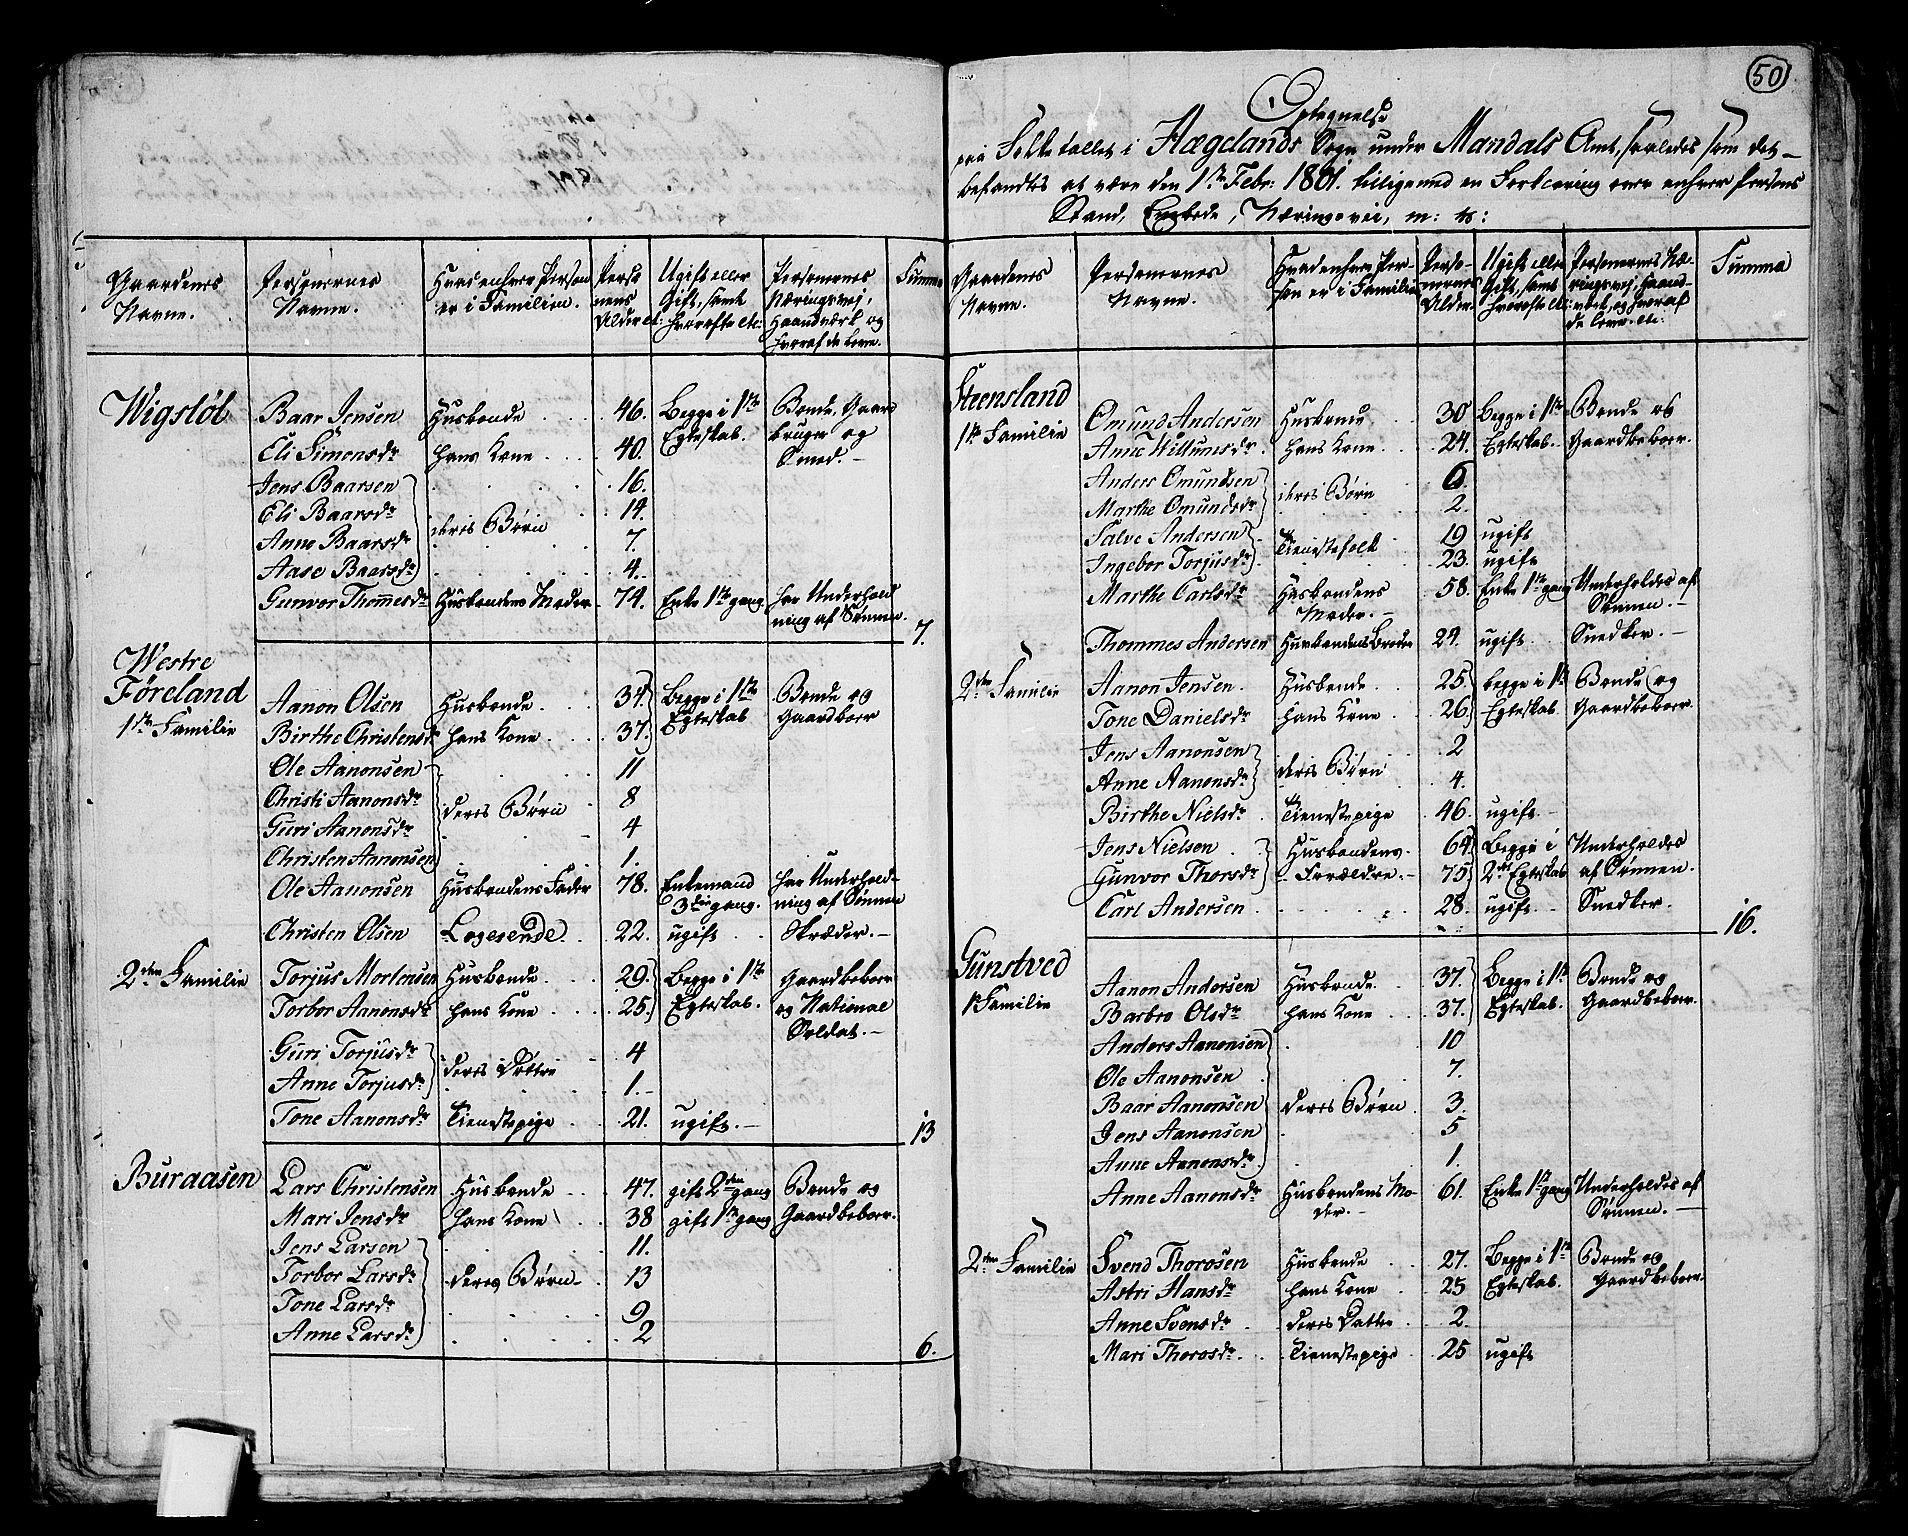 Gaardenes Navne. | Personernes Navne. | Hvad enhver Person er i Familien. | Personens Alder etc: | Ugift eller Gift, samt hvorofte etc: | Personernes Næringsvej, Haandværk, og hvoraf de leve. | Summa
Wigstøl | Baar Jensen | Huusbonde | 46. | Begge i 1ste | Bonde, Gaard
Eli Simonsdr | hans Kone | 40. | Egteskab. | bruger og
Jens Baarsen | 16. | Smed.
Eli Baarsdr | deres Børn | 14.
Anne Baarsdr | 7.
Aase Baarsdr | 4.
Gunvor Thommesdr | Huusbondens Moder | 74. | Enke 1ste gang | har Underhold
ning af Sønnen. | 7.
Westre
Føreland | Aanon Olsen | Huusbonde | 34. | Begge i 1ste | Bonde og
1ste Familie | Birthe Christensdr | hans Kone | 37. | Egteskab | Gaardboer
Ole Aanonsen | 11
Christi Aanonsdr | deres Børn | 8
Guri Aanonsdr | 4
Christen Aanonsen | 1.
Ole Aanonsen | Huusbondens Fader | 78. | Enkemand | har Underhold-
3die gang. | ning af Sønnen
Christen Olsen | Logerende | 22. | ugift | Skræder.
2den Familie | Torjus Mortensen | Huusbonde | 29. | Begge i 1ste | Gaardbeboer
Torbor Aanonsdr | hans Kone | 25. | Egteskab. | og National
Soldat.
Guri Torjusdr | deres Døttre | 4
Anne Torjusdr | 1.
Tone Aanonsdr | Tienestepige | 21. | ugift. | 13
Buraasen | Lars Christensen | Huusbonde | 47. | gift 2den gang | Bonde og
Mari Jensdr | hans Kone | 38 | gift 1ste gang | Gaardbeboer.
Jens Larsen | 11.
Torbor Larsdr | deres Børn | 13
Tone Larsdr | 9
Anne Larsdr | 2 | 6.
50
Optegnelse
paa Folketallet i Hægelands Sogn under Mandals Amt, saaledes som det
befandtes at være den 1ste Febr: 1801. tilligemed en Forklaring over enhver Persons
Stand, Embede, Næringsvei, m: v:
Gaardenes Navne. | Personernes Navne. | Hvad enhver Person er i Familien | Personernes Alder. | Ugift eller Gift, samt hvorofte etc: | Personernes Næringsvej, Haandværk, og hvoraf de leve. etc: | Summa
Steensland | Omund Andersen | Huusbonde | 30 | Begge i 1ste | Bonde og
1ste Familie | Anne Willumsdr | hans Kone | 24. | Egteskab. | Gaardbeboer.
Anders Omundsen | deres Børn | 6.
Marthe Omundsdr | 2.
Salve Andersen | Tienestefolk | 19 | ugift
Ingebor Torjusdr | 23. | ugift
Marthe Carlsdr | Huusbondens | 58. | Enke 1ste gang | Underholdes af
Moder. | Sønnen.
Thommes Andersen | Huusbondens Broder | 24. | ugift | Snedker.
2den Familie | Aanon Jensen | Huusbonde | 25 | begge i 1ste | Bonde og
Tone Danielsdr | hans Kone | 26 | Egteskab | Gaardbeboer.
Jens Aanonsen | deres Børn | 2
Anne Aanonsdr | 4.
Birthe Nielsdr | Tienestepige | 46. | ugift
Jens Nielsen | Huusbondens | 64 | Begge i | Underholdes
Gunvor Thorsdr | Forældre. | 75 | 2det Egteskab | af Sønnen.
Carl Andersen | 28. | ugift | Snedker. | 16.
Gunstved | Aanon Andersen | Huusbonde | 37. | Begge i 1ste | Bonde og
1ste Familie | Barbro Olsdr | hans Kone | 37. | Egteskab. | Gaardbeboer.
Anders Aanonsen | 10
Ole Aanonsen | 7.
Baar Aanonsen | deres Børn | 3.
Jens Aanonsen | 5
Anne Aanonsdr | 1.
Anne Aanonsdr | Huusbondens Mo- | 61. | Enke 1ste gang | Underholdes af
der. | Sønnen.
2den Familie | Svend Thorosen | Huusbonde | 27. | Begge i 1ste | Bonde og
Astri Hansdr | hans Kone | 25 | Egteskab. | Gaardbeboer.
Anne Svensdr | deres Datter | 2.
Mari Thorosdr. | Tienestepige | 25 | ugift